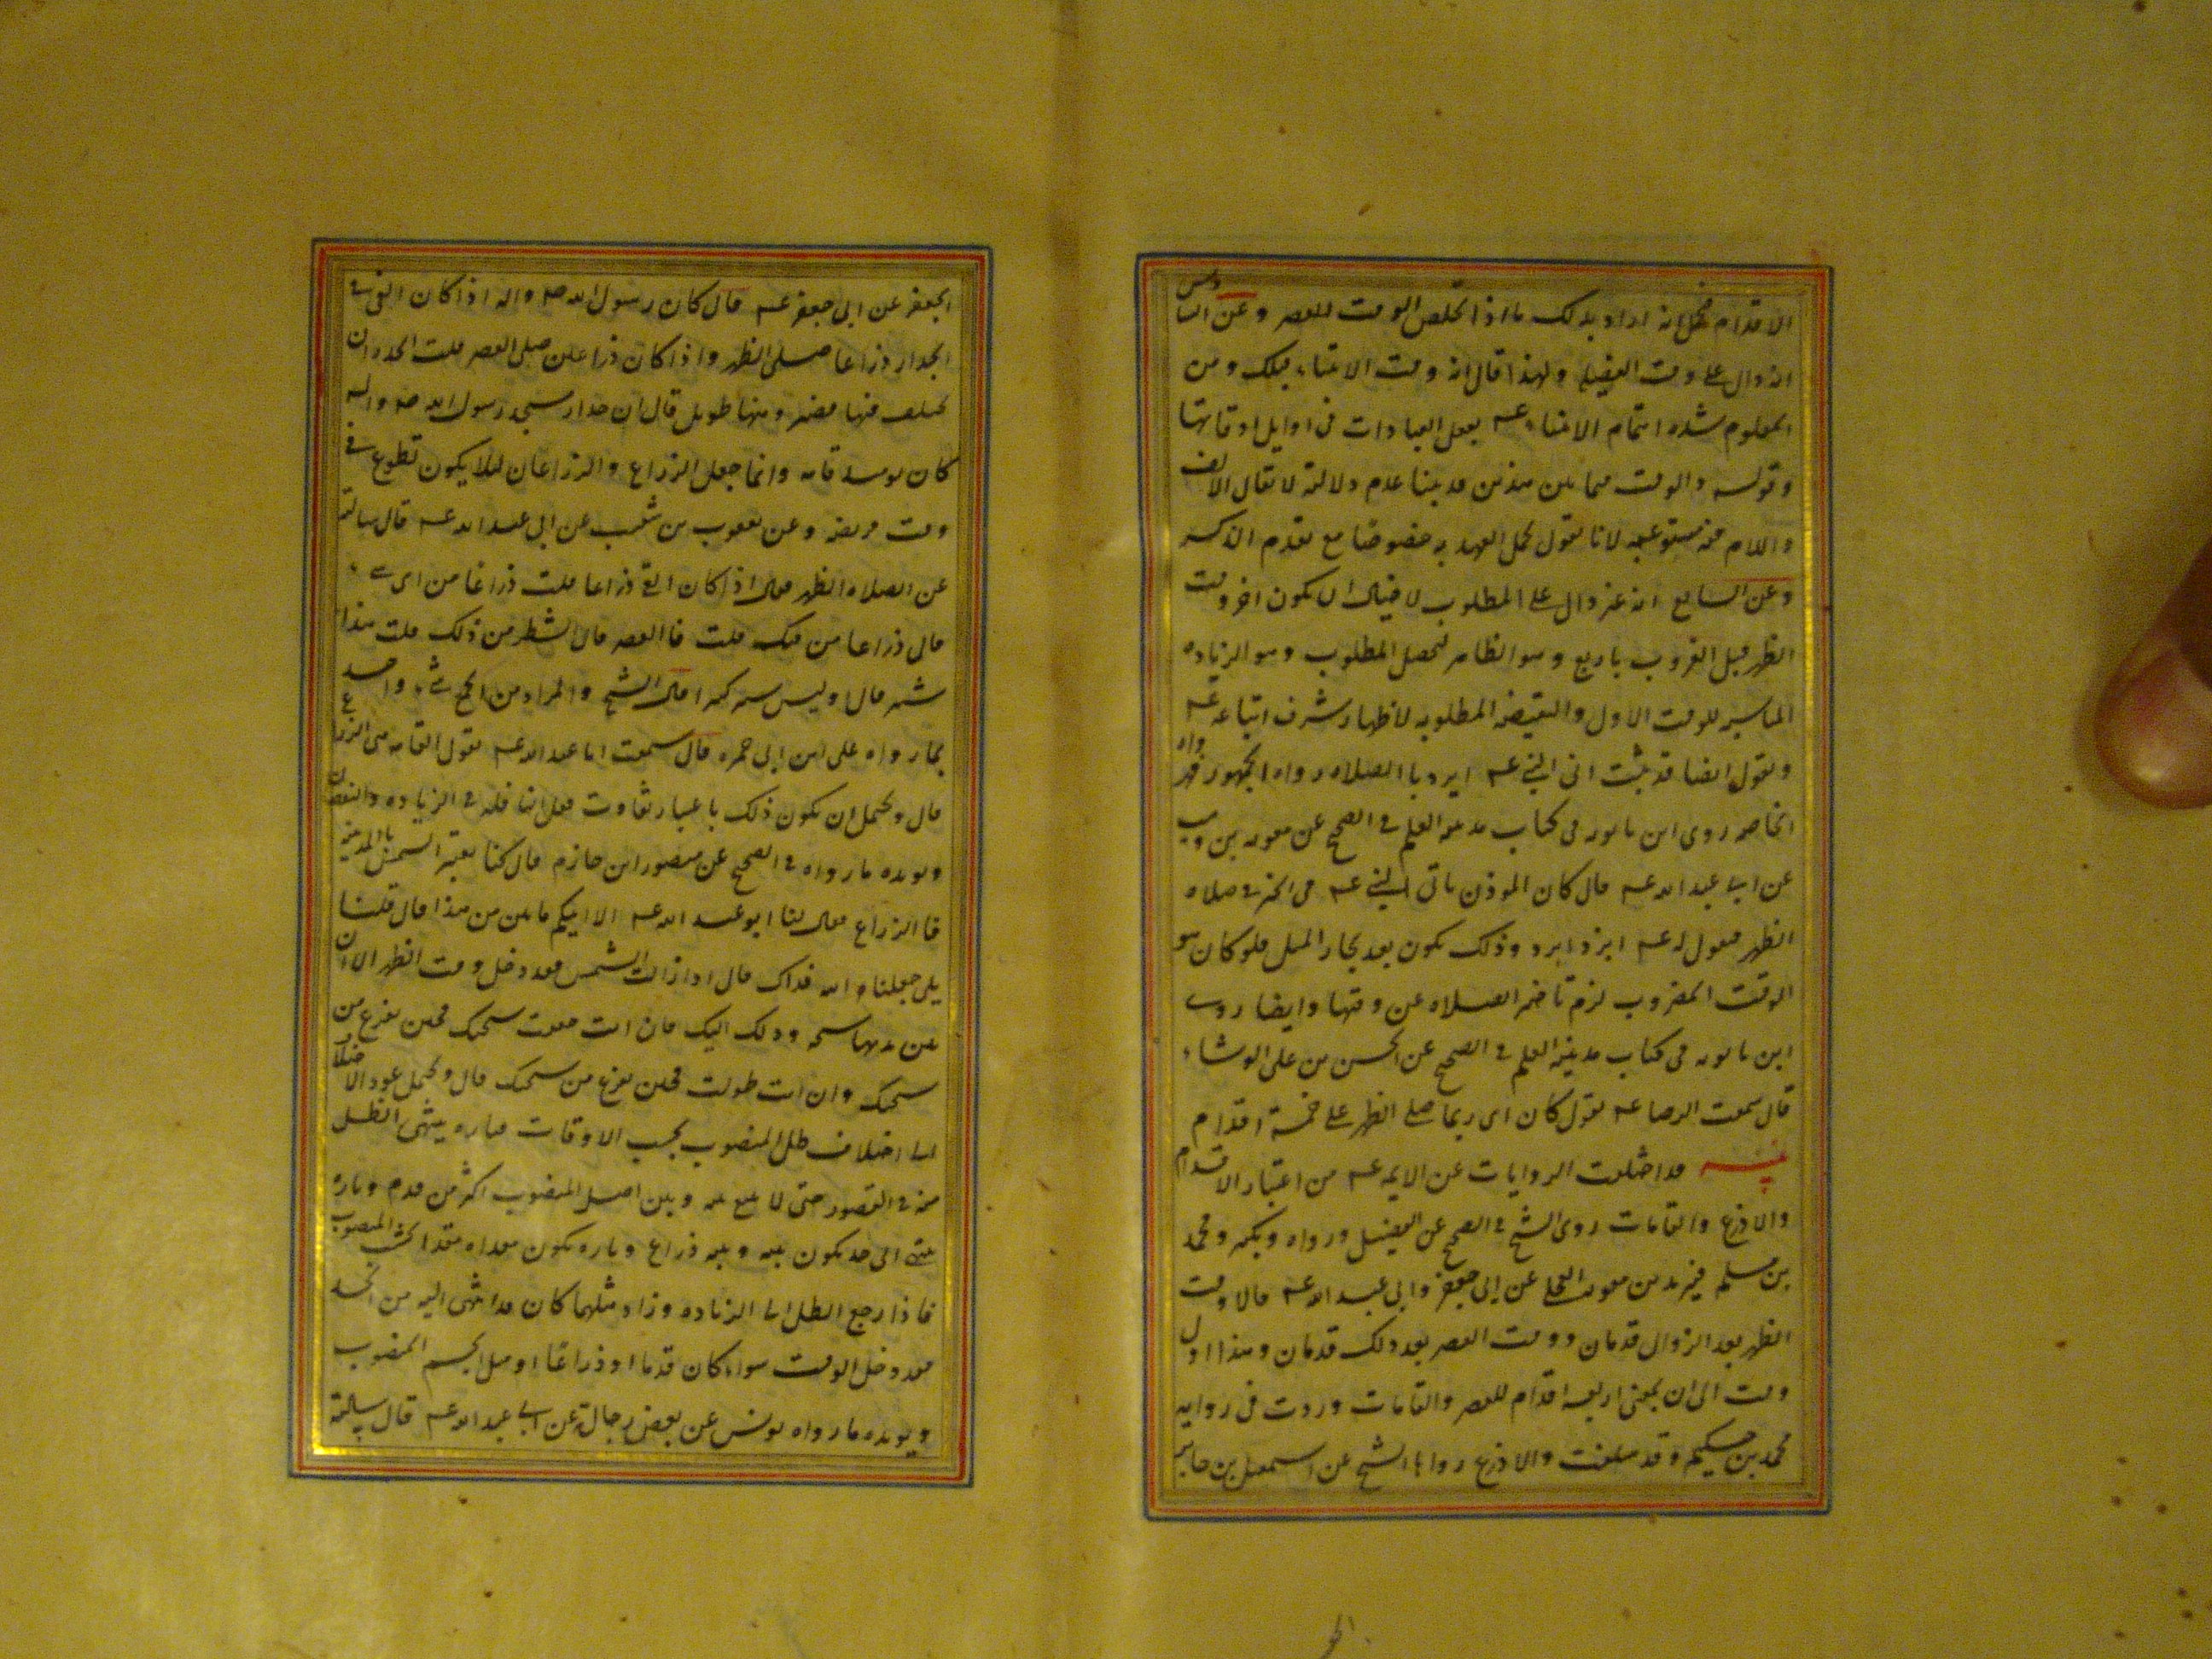 الاقدام فحمل انه اراد بذلك ما اذا تخلص الوقت للعصر وعن السادس
انه دال على وقت الفضيلة ولهذا قال انه وقت الانبياء قبلك ومن
المعلوم شده اهتمام الانبياء عم بفعل العبادات فى اوايل اوقاتها
وقوله والوقت فيما بين هذين قد بينا عدم دلالته لا يقال الالف
واللام فيه مستوعبه لانا نقول نحمل العهد به خصوصا مع تقدم الذكر
وعن السابع انه غير دال على المطلوب لاحتمال ان يكون اخر وقت
الظهر قبل الغروب باربع وهو الظاهر فيحصل المطلوب وهو الزيادة
للوقت الاول المطلوبه لاظهار شرف اتباعه عم
ونقول ايضا قد ثبت ان النبى عم ابرد بالصلاه رواه الجمهور ورواه
الخاصه روى ابن بابويه فى كتاب مدينه العلم فى الصحيح عن معويه بن وهب
عن ابى عبد الله عم قال كان الموذن ياتى النبى عم فى الحر فى صلاه
الظهر فيقول له عم ابرد ابرد وذلك يكون بعد تجاوز المثل فلو كان هو
الوقت المضروب لزم تاخير الصلاه عن وقتها وايضا روى
ابن بابويه فى كتاب مدينه العلم فى الصحيح عن الحسن بن على الوشاء
قال سمعت الرضا عم يقول كان ابى ربما صلى الظهر على خمسة اقدام
تنبيه قد اختلفت الروايات عن الايمه عم من اعتبار الاقدام
والاذرع والقامات روى الشيخ فى الصحيح عن الفضيل وزراره وبكير ومحمد
بن مسلم وبريد بن معويه العجلى عن ابى جعفر وابى عبد الله عم قالا وقت
الظهر بعد الزوال قدمان ووقت العصر بعد ذلك قدمان وهذا اول
وقت الى ان يمضى اربعه اقدام للعصر والقامات وردت فى روايه
محمد بن حكيم وقد سلفت والاذرع رواها الشيخ عن اسمعيل بن
الجعفى عن ابى جعفر عم قال كان رسول الله صه واله اذا كان الفى فى
الجدار ذراعا صلى الظهر واذا كان ذراعين صلى العصر قلت الجدران
تختلف منها قصير ومنها طويل قال ان جدار مسجد رسول الله صه واله
كان يومئذ قامه وانما جعل الذراع والذراعان لئلا يكون تطوع فى
وقت فريضه وعن يعقوب بن شعيب عن ابى عبد الله عم قال سالته
عن الصلاه الظهر فقال اذا كان الفى ذراعا قلت ذراعا من اى شىء
قال ذراعا من فيك قلت فالعصر قال الشطر من ذلك قلت هذا
شبر قال اوليس شبر كثيرا قال الشيخ والمراد من الجميع شىء واحد
بما رواه على ابن ابى حمزه قال سمعت ابا عبد الله عم يقول القامه هى الذراع
قال ويحتمل ان يكون ذلك باعتبار تفاوت فعل النافله فى الزياده والنقصان
ويويده ما رواه فى الصحيح عن منصور ابن حازم قال كنا نعتبر الشمس بالمدينه
فالذراع فقال لنا ابو عبد الله عم الا انبيكم بابين من هذا قال قلنا
بلى جعلنا الله فداك قال اذا زالت الشمس فقد دخل وقت الظهر الا ان
بين يديها سبحه وذلك اليك فان انت خففت سبحتك فحين تفرغ من
سبحتك وان انت طولت فحين تفرغ من سبحتك قال ويحتمل عود الاختلاف
الى اختلاف ظل المنصوب بحسب الاوقات فتاره ينتهى الظل
منه فى القصور حتى لا يبقى بينه وبين اصل المنصوب اكثر من قدم وتاره
ينتهى الى حد يكون بينه وبينه ذراع وتاره يكون مقداره مقدار الخشب المنصوب
فاذا رجع الظل الى الزياده وزاد مثلها كان قد انتهى اليه من الحد
فقد دخل الوقت سواء كان قدما او ذراعا او مثل الجسم المنصوب
ويويده ما رواه يونس عن بعض رجاله عن ابى عبد الله عم قال سالته